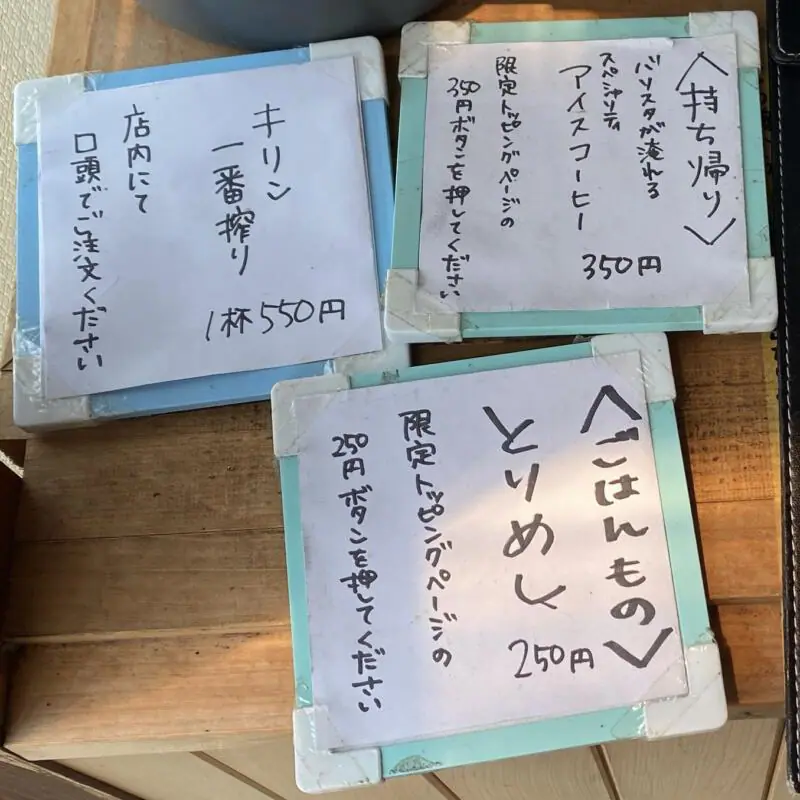 キリン
一番搾り
1杯550円
店内にて
口頭でご注文ください
〈持ち帰り〉
バリスタが淹れる
スペシャリティ
アイスコーヒー
350円
限定トッピングページの
350円ボタンを押してください
〈ごはんもの〉
とりめし
250円
限定トッピングページの
250円ボタンを押してください